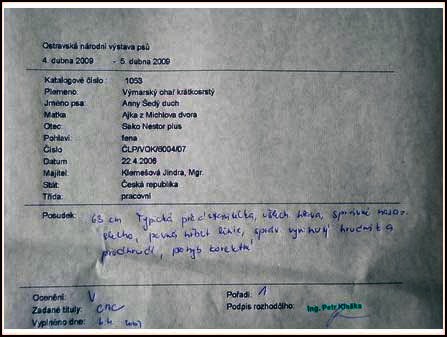 Ostravská národní výstava psů
4. dubna 2009 - 5. dubna 2009
Katalogové číslo : 1053
Plemeno: Výmarský ohař krátkosrstý
Jméno psa: Anny Šedý duch
Matka Ajka z Michlova dvora
Otec: Sako Nestor plus
Pohlaví: fena
Číslo ČLP/VOK/6004/07
Datum 22.4.2006
Majitel: Klemešová Jindra, Mgr.
Stát: Česká republika
Třída: pracovní
Posudek: 63 cm Typická představitelka, ušlech hlava, správně nasaz.
plecho, pevná hřbet linie, správ vyvinutý hrudník a
předhrudí, pohyb korektní
Ocenění: V Pořadí: 1
Zadané tituly: CAC Podpis rozhodčího: Ing. Petr Kluška
Vyplněno dne: